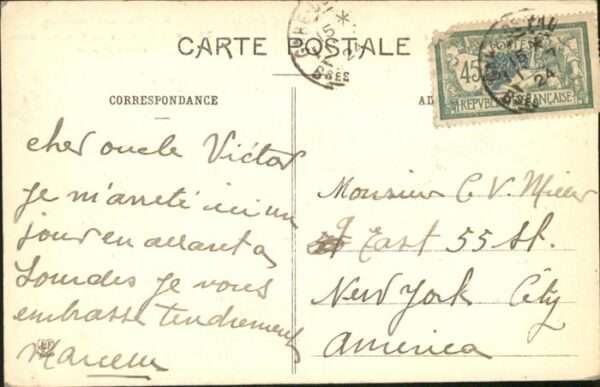 CARTE POSTALE
45
REPUBLIQUE FRANÇAISE
15
24
CORRESPONDANCE
AD
cher oncle Victor
je m'arrete ici un
jour en allant a
Lourdes je vous
embrasse tendrement
Marcelle
Monsieur C. V. Miller
9 East 55 St.
New York City
America